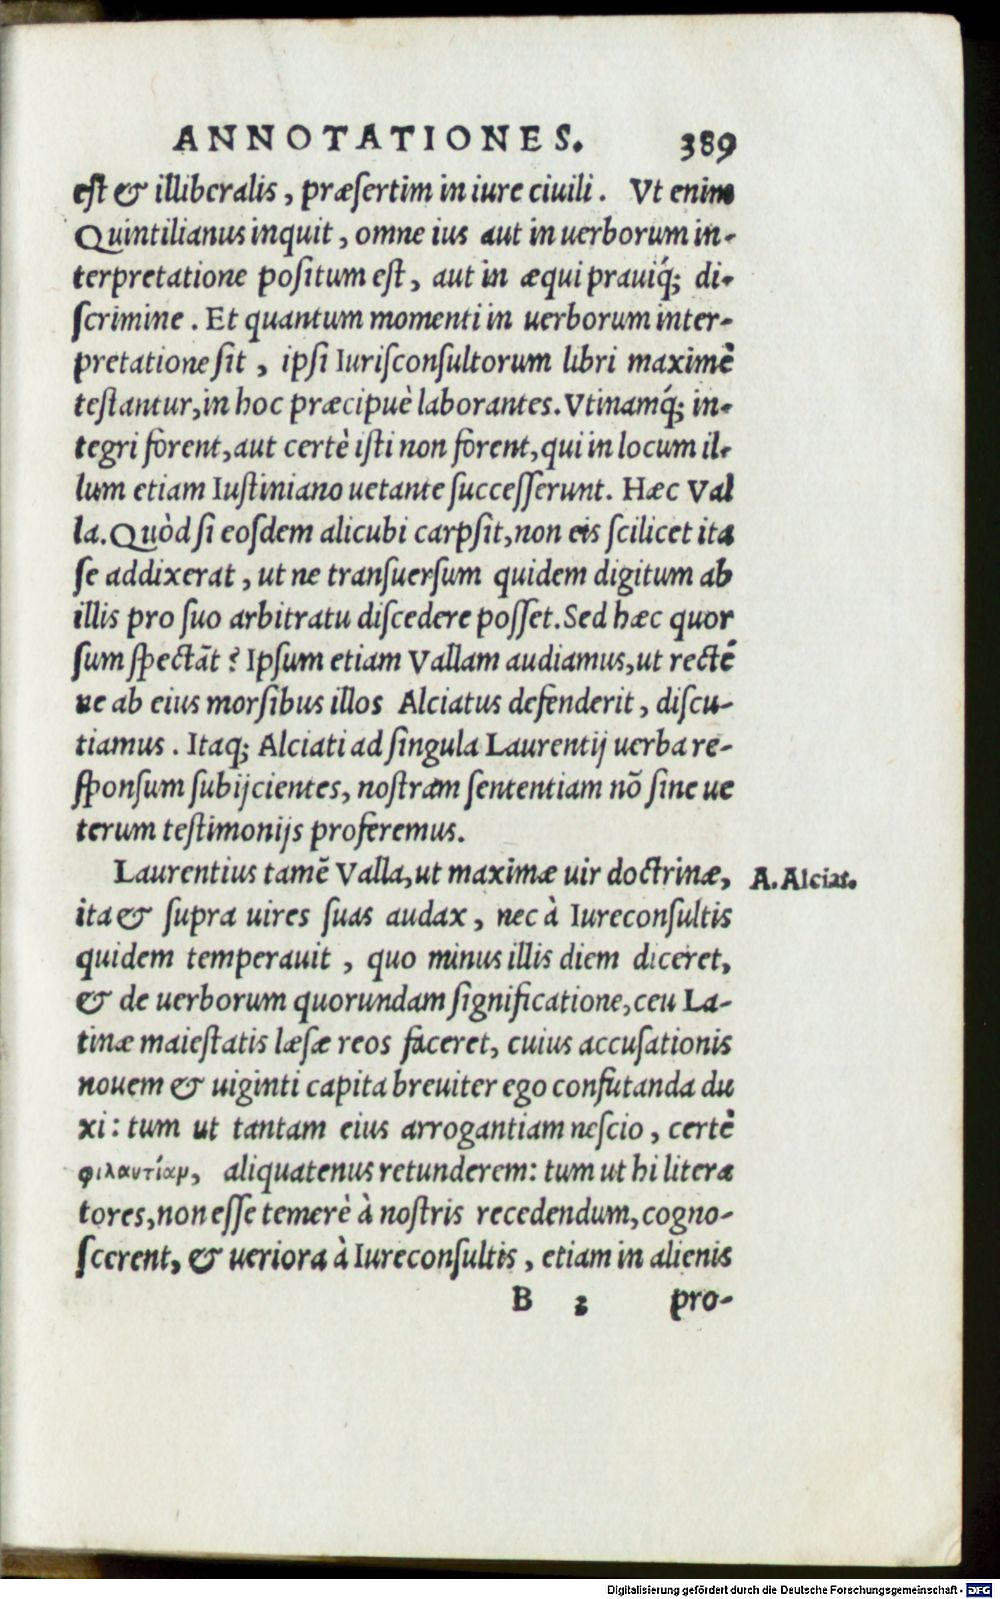 ANNOTATIONES. 389
est & illiberalis, præsertim in iure ciuili. Vt enim
Quintilianus inquit, omne ius aut in uerborum in-
terpretatione positum est, aut in æqui prauiq́; di-
scrimine. Et quantum momenti in uerborum inter-
pretatione sit, ipsi Iurisconsultorum libri maximè
testantur, in hoc præcipuè laborantes. Vtinamq́; in-
tegri forent, aut certè isti non forent, qui in locum il-
lum etiam Iustiniano uetante successerunt. Hæc Val
la. Quòd si eosdem alicubi carpsit, non eis scilicet ita
se addixerat, ut ne transuersum quidem digitum ab
illis pro suo arbitratu discedere posset. Sed hæc quor
sum spectãt? Ipsum etiam Vallam audiamus, ut recté
ne ab eius morsibus illos Alciatus defenderit, discu-
tiamus. Itaq; Alciati ad singula Laurentij uerba re-
sponsum subijcientes, nostram sententiam nõ sine ue
terum testimonijs proferemus.
Laurentius tamẽ Valla, ut maximæ uir doctrinæ, A. Alciat.
ita & supra uires suas audax, nec à Iureconsultis
quidem temperauit, quo minus illis diem diceret,
& de uerborum quorundam significatione, ceu La-
tinæ maiestatis læsæ reos faceret, cuius accusationis
nouem & uiginti capita breuiter ego confutanda du
xi: tum ut tantam eius arrogantiam nescio, certè
φιλαυτίαμ, aliquatenus retunderem: tum ut hi litera
tores, non esse temerè à nostris recedendum, cogno-
scerent, & ueriora à Iureconsultis, etiam in alienis
B 3 pro-
Digitalisierung gefördert durch die Deutsche Forschungsgemeinschaft - DFG